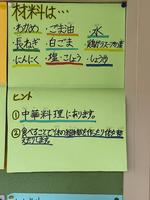 材料は…
・わかめ ・ごま油 ・水
・長ねぎ ・白ごま ・鶏ガラスープの素
・にんにく ・塩・こしょう ・しょうゆ
ヒント
①中華料理にあります。
②食べることで体の